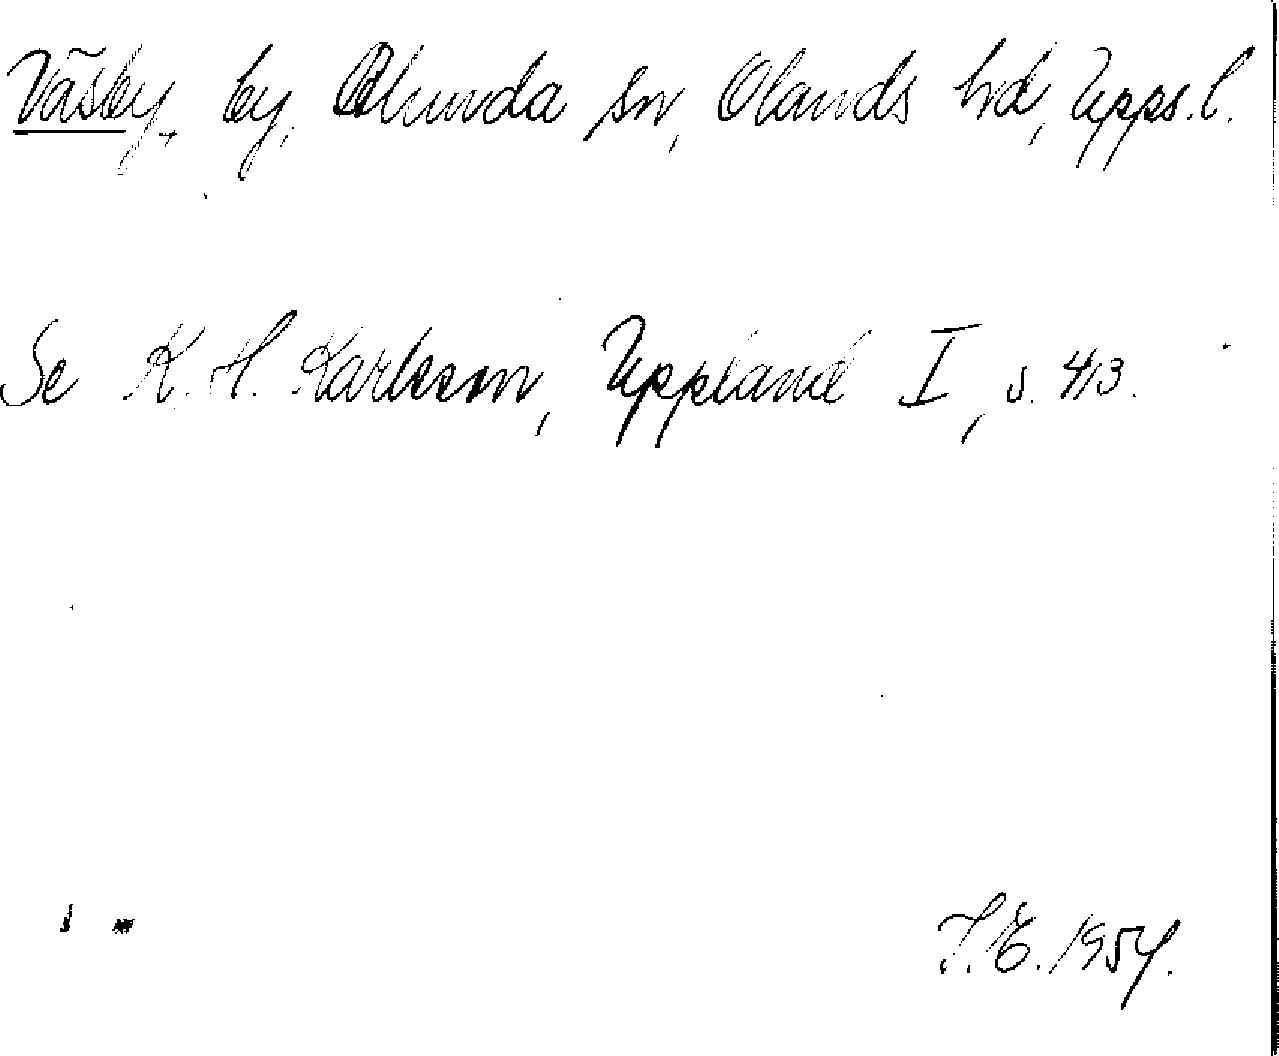 Väsby, by, Alunda sn, Olands hd, Upps.l.
Se K. H. Karlsson, Uppland I, s. 413.
1954.